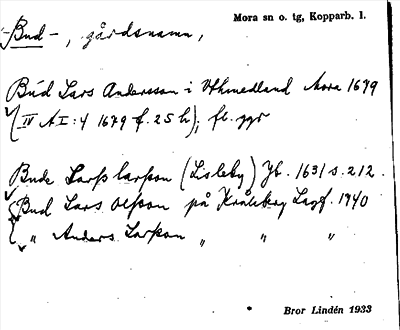 -Bud-, gårdsnamn,
Mora sn o. tg, Kopparb. l.
Búd Lars Andersson i Utmedland Mora 1679
(IV A I: 4 1679 f. 25 h); fl. ggr
Bude Larss larsson (Lisleby) Jb. 1631 s. 212.
Bud Lars Olsson på Kråkberg Lagf. 1940
" Anders Larsson " " "
Bror Lindén 1933